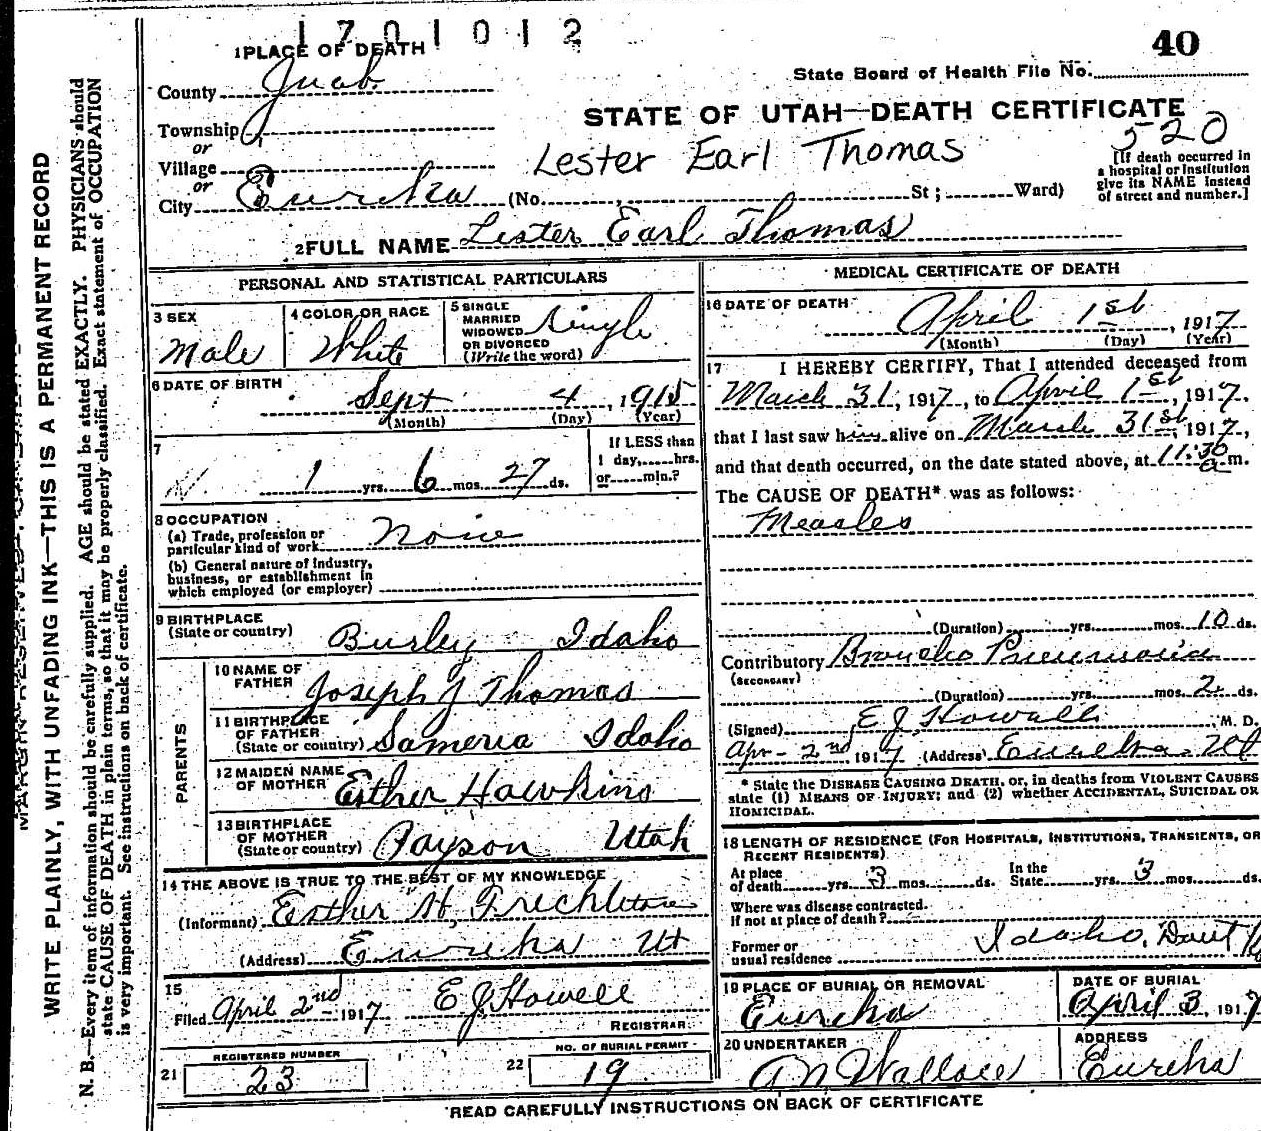 1 7 0 1 0 1 2
40
1 PLACE OF DEATH
State Board of Health File No.
County Juab
STATE OF UTAH—DEATH CERTIFICATE
Township
or
Village
or
City Eureka (No. St; Ward)
Lester Earl Thomas
520
[If death occurred in
a hospital or institution
give its NAME instead
of street and number.]
2 FULL NAME Lester Earl Thomas
PERSONAL AND STATISTICAL PARTICULARS
3 SEX
Male
4 COLOR OR RACE
White
5 SINGLE
MARRIED
WIDOWED
OR DIVORCED
(Write the word)
Single
6 DATE OF BIRTH
Sept 4, 1915
(Month) (Day) (Year)
7
1 yrs. 6 mos. 27 ds.
If LESS than
1 day, hrs.
or min.?
8 OCCUPATION
(a) Trade, profession or
particular kind of work None
(b) General nature of Industry,
business, or establishment in
which employed (or employer)
9 BIRTHPLACE
(State or country) Burley Idaho
PARENTS
10 NAME OF
FATHER Joseph J Thomas
11 BIRTHPLACE
OF FATHER
(State or country) Sameria Idaho
12 MAIDEN NAME
OF MOTHER Esther Hawkins
13 BIRTHPLACE
OF MOTHER
(State or country) Payson Utah
14 THE ABOVE IS TRUE TO THE BEST OF MY KNOWLEDGE
(Informant) Esther H.
(Address) Eureka Ut
15
Filed April 2nd 1917 E J Howell
REGISTRAR
REGISTERED NUMBER
21 23
NO. OF BURIAL PERMIT
22 19
MEDICAL CERTIFICATE OF DEATH
16 DATE OF DEATH
April 1st, 1917
(Month) (Day) (Year)
17 I HEREBY CERTIFY, That I attended deceased from
March 31, 1917, to April 1st, 1917.
that I last saw him alive on March 31st, 1917,
and that death occurred, on the date stated above, at 11:30 a m.
The CAUSE OF DEATH* was as follows:
Measles
(Duration) yrs. mos. 10 ds.
Contributory Broncho Pneumonia
(SECONDARY)
(Duration) yrs. mos. 2 ds.
(Signed) E J Howell M. D.
Apr - 2nd, 1917 (Address) Eureka - Ut
* State the DISEASE CAUSING DEATH, or, in deaths from VIOLENT CAUSES
state (1) MEANS OF INJURY; and (2) whether ACCIDENTAL, SUICIDAL OR
HOMICIDAL.
18 LENGTH OF RESIDENCE (FOR HOSPITALS, INSTITUTIONS, TRANSIENTS, OR
RECENT RESIDENTS)
At place
of death yrs. 3 mos. ds.
In the
State yrs. 3 mos. ds.
Where was disease contracted.
If not at place of death?
Former or
usual residence Idaho,
19 PLACE OF BURIAL OR REMOVAL
Eureka
DATE OF BURIAL
April 3, 1917
20 UNDERTAKER
Wallace
ADDRESS
Eureka
READ CAREFULLY INSTRUCTIONS ON BACK OF CERTIFICATE
WRITE PLAINLY, WITH UNFADING INK—THIS IS A PERMANENT RECORD
N. B.—Every item of information should be carefully supplied. AGE should be stated EXACTLY. PHYSICIANS should
state CAUSE OF DEATH in plain terms, so that it may be properly classified. Exact statement of OCCUPATION
is very important. See instructions on back of certificate.